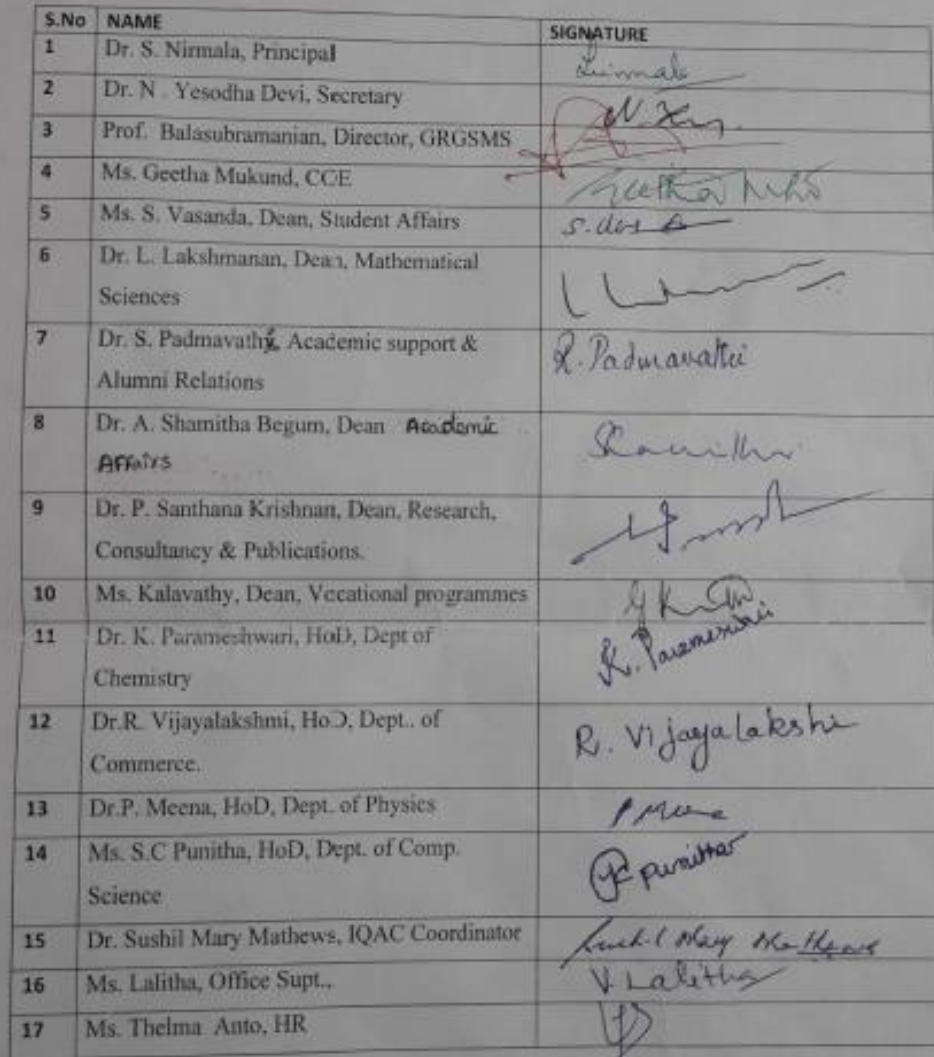 S.No NAME SIGNATURE
1 Dr. S. Nirmala, Principal
2 Dr. N . Yesodha Devi, Secretary
3 Prof. Balasubramanian, Director, GRGSMS
4 Ms. Geetha Mukund, CCE
5 Ms. S. Vasanda, Dean, Student Affairs
6 Dr. L. Lakshmanan, Dean, Mathematical
Sciences
7 Dr. S. Padmavathi, Academic support & R. Padmavathi
Alumni Relations
8 Dr. A. Shamitha Begum, Dean Academic
Affairs
9 Dr. P. Santhana Krishnan, Dean, Research,
Consultancy & Publications.
10 Ms. Kalavathy, Dean, Vocational programmes
11 Dr. K. Parameshwari, HoD, Dept of K. Parameswari
Chemistry
12 Dr.R. Vijayalakshmi, HoD, Dept.. of R. Vijayalakshi
Commerce.
13 Dr.P. Meena, HoD, Dept. of Physics
14 Ms. S.C Punitha, HoD, Dept. of Comp. punitha
Science
15 Dr. Sushil Mary Mathews, IQAC Coordinator Sushil Mary Mathews
16 Ms. Lalitha, Office Supt., V. Lalitha
17 Ms. Thelma Anto, HR